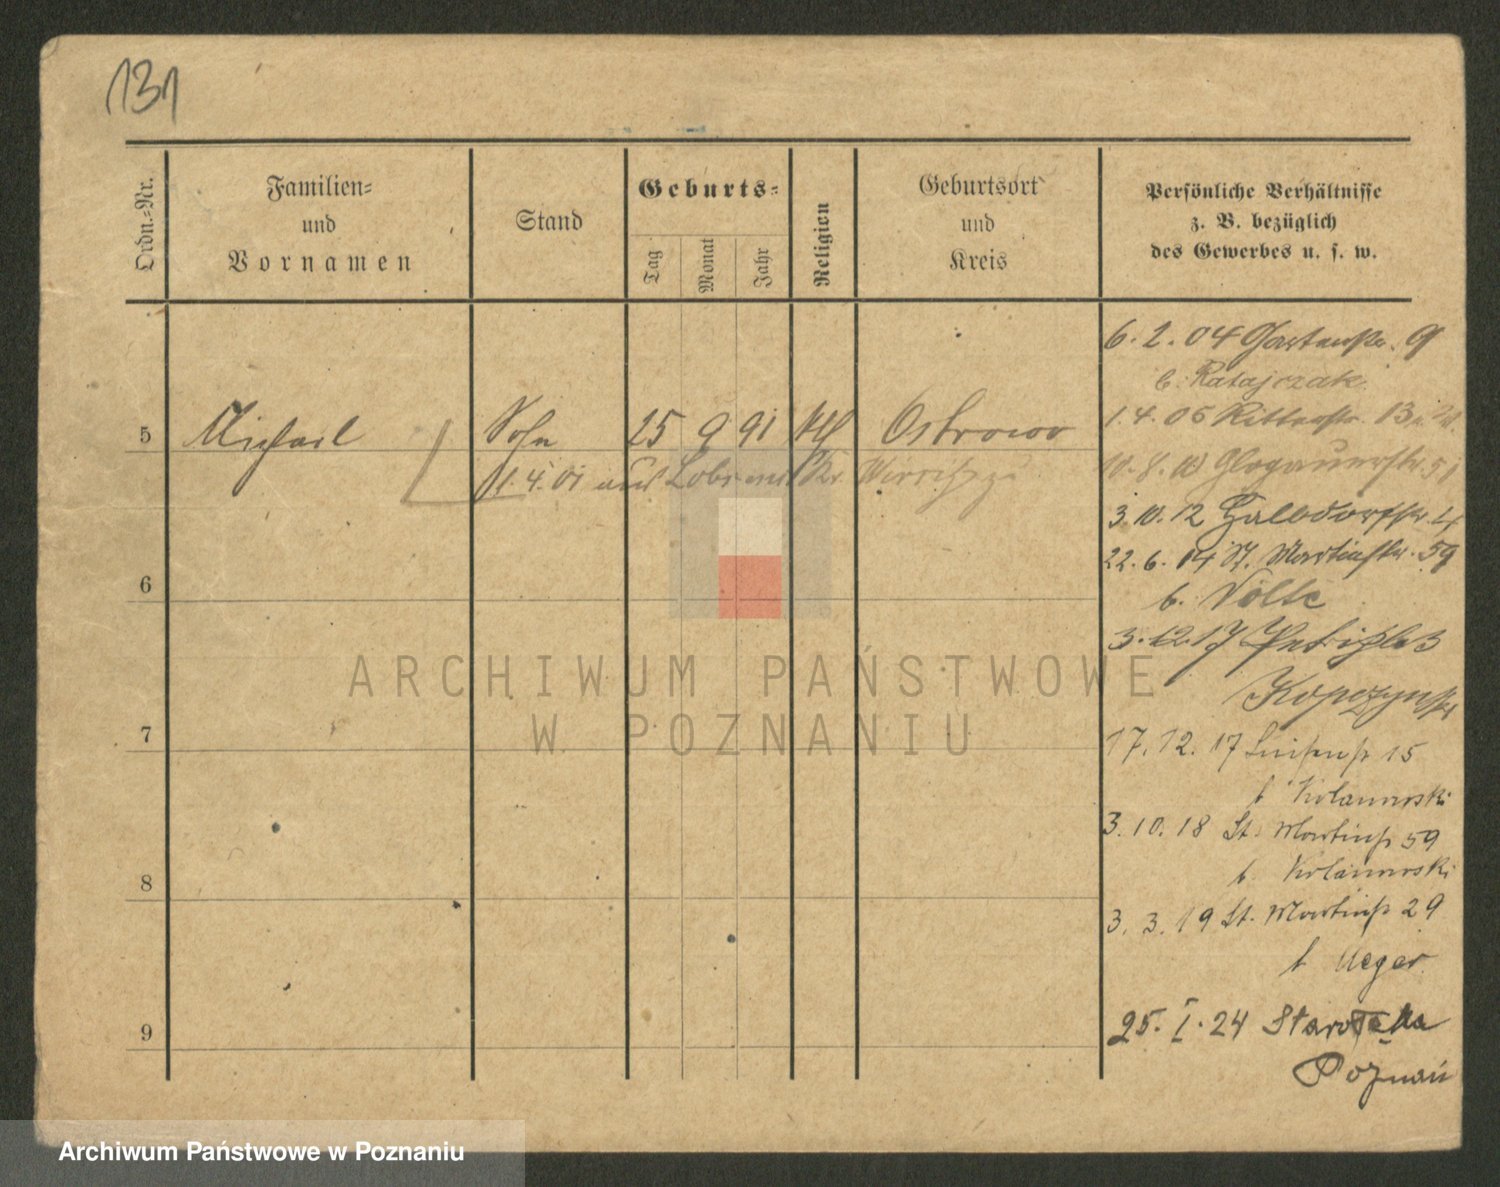 131
Ordn.=Nr.
Familien=
und
Vornamen
Stand
Geburts=
Tag
Monat
Jahr
Religion
Geburtsort
und
Kreis
Persönliche Verhältnisse
z. B. bezüglich
des Gewerbes u. s. w.
6. 2. 04 Gartenstr. 9
b. Ratajczak
5 Michael Sohn 25 9 91 Ostrowo
1. 4. 06 Ritterstr. 13
1. 4. 01 aus Lobsens Kr. Wirsitz
10. 8. Glogauerstr. 51
3. 10. 12 Halbdorfstr. 4
22. 6. 14 St. Martinstr. 59
6
b. Nolte
3. 12. 17
7
17. 12. 17 Luisenstr 15
b Kolanowski
3. 10. 18 St. Martinstr 59
b. Kolanowski
8
3. 3. 19 St. Martinstr 29
b
25. I. 24 Starołęka
9
Poznań
ARCHIWUM PAŃSTWOWE
W POZNANIU
Archiwum Państwowe w Poznaniu